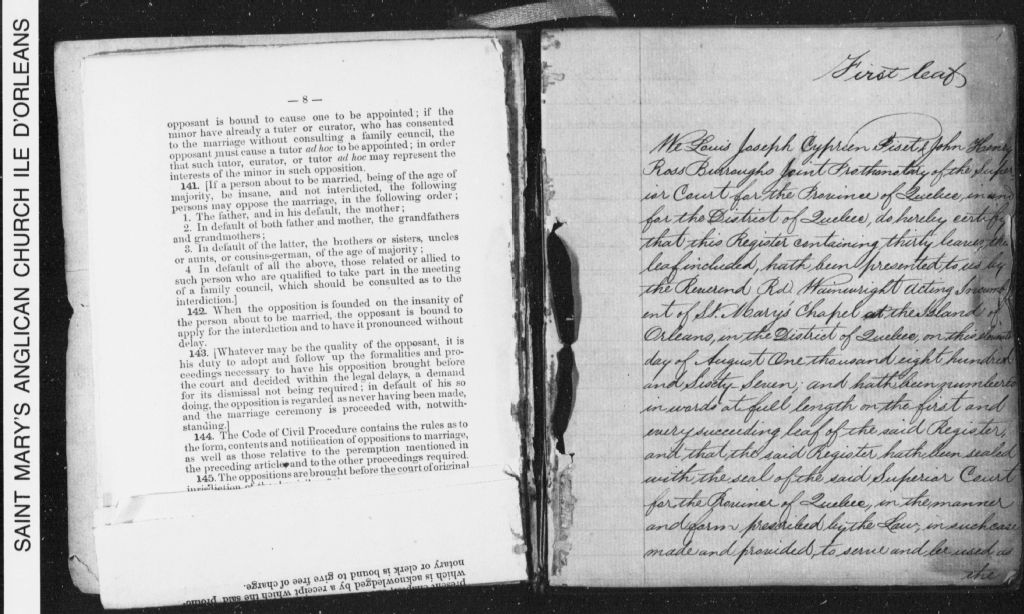 SAINT MARY'S ANGLICAN CHURCH ILE D'ORLEANS
— 8 —
opposant is bound to cause one to be appointed; if the
minor have already a tuter or curator, who has consented
to the marriage without consulting a family council, the
opposant must cause a tutor ad hoc to be appointed; in order
that such tutor, curator, or tutor ad hoc may represent the
interests of the minor in such opposition.
141. [If a person about to be married, being of the age of
majority, be insane, and not interdicted, the following
persons may oppose the marriage, in the following order;
1. The father, and in his default, the mother;
2. In default of both father and mother, the grandfathers
and grandmothers;
3. In default of the latter, the brothers or sisters, uncles
or aunts, or cousins-german, of the age of majority;
4 In default of all the above, those related or allied to
such person who are qualified to take part in the meeting
of a family council, which should be consulted as to the
interdiction.]
142. When the opposition is founded on the insanity of
the person about to be married, the opposant is bound to
apply for the interdiction and to have it pronounced without
delay.
143. [Whatever may be the quality of the opposant, it is
his duty to adopt and follow up the formalities and pro-
ceedings necessary to have his opposition brought before
the court and decided within the legal delays, a demand
for its dismissal not being required; in default of his so
doing, the opposition is regarded as never having been made,
and the marriage ceremony is proceeded with, notwith-
standing.]
144. The Code of Civil Procedure contains the rules as to
the form, contents and notification of oppositions to marriage,
as well as those relative to the peremption mentioned in
the preceding article and to the other proceedings required.
145. The oppositions are brought before the court of original
which is acknowledged by a receipt which the said
notary or clerk is bound to give free of charge.
First leaf
We Louis Joseph Cyprien Fiset & John
Ross Burroughs Joint Prothonotary of the Super
ior Court for the Province of Quebec, in and
for the District of Quebec, do hereby certify
that this Register containing thirty leaves, the
leaf included, hath been presented to us by
the Reverend Rd. Wainwright Acting Incumb
ent of St. Mary's Chapel at the Island of
Orleans, in the District of Quebec, on this
day of August One thousand eight hundred
and Sixty Seven; and hath been numbered
in words at full length on the first and
every succeeding leaf of the said Register,
and that the said Register hath been sealed
with the seal of the said Superior Court
for the Province of Quebec, in the manner
and form prescribed by the Law, in such case
made and provided, to serve and be used as
the